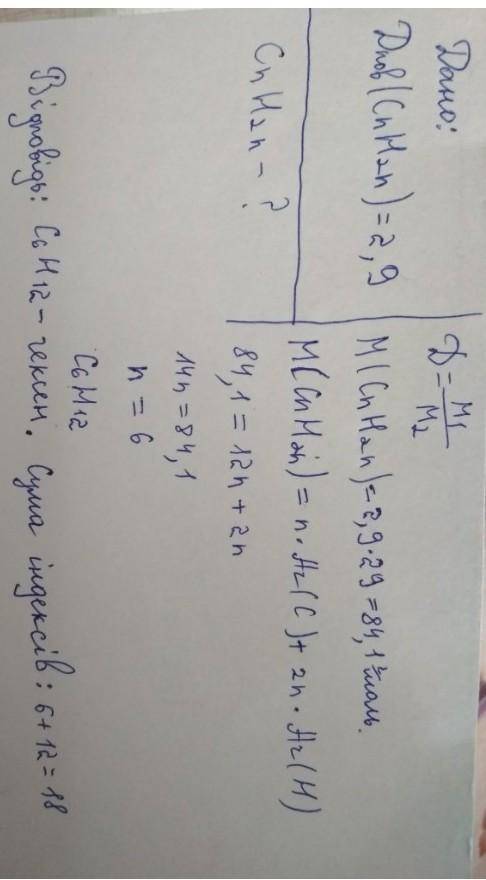 Дано:
Dпов(CnH2n)=2,9
CnH2n - ?
D = M1/M2
M(CnH2n)=2,9·29=84,1 г/моль.
M(CnH2n) = n·Ar(C)+2n·Ar(H)
84,1 = 12n+2n
14n=84,1
n = 6
C6H12
Відповідь: C6H12 – гексен. Сума індексів: 6+12=18